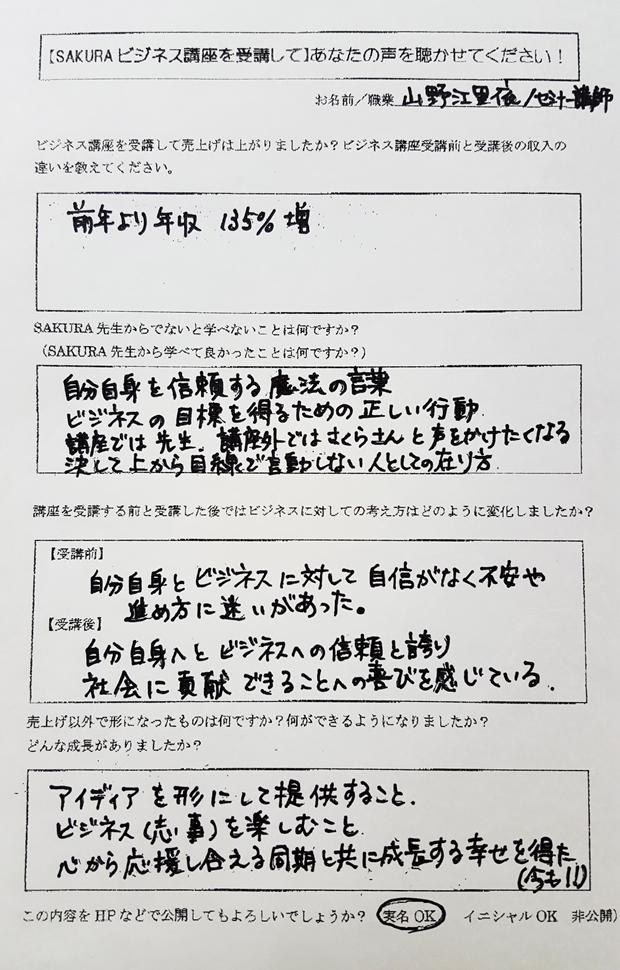 【SAKURAビジネス講座を受講して】あなたの声を聴かせてください！
お名前／職業 山野江里依/セミナー講師
ビジネス講座を受講して売上げは上がりましたか？ビジネス講座受講前と受講後の収入の
違いを教えてください。
前年より年収 135% 増
SAKURA先生からでないと学べないことは何ですか？
（SAKURA先生から学べて良かったことは何ですか？）
自分自身を信頼する魔法の言葉
ビジネスの目標を得るための正しい行動.
講座では先生、講座外ではさくらさんと声をかけたくなる
決して上から目線で言動しない人としての在り方
講座を受講する前と受講した後ではビジネスに対しての考え方はどのように変化しましたか？
【受講前】
自分自身とビジネスに対して自信がなく不安や
進め方に迷いがあった。
【受講後】
自分自身へとビジネスへの信頼と誇り
社会に貢献できることへの喜びを感じている.
売上げ以外で形になったものは何ですか？何ができるようになりましたか？
どんな成長がありましたか？
アイディアを形にして提供すること.
ビジネス(志事)を楽しむこと.
心から応援し合える同期と共に成長する幸せを得た
(今も!!)
この内容をHPなどで公開してもよろしいでしょうか？ 実名OK イニシャルOK 非公開）